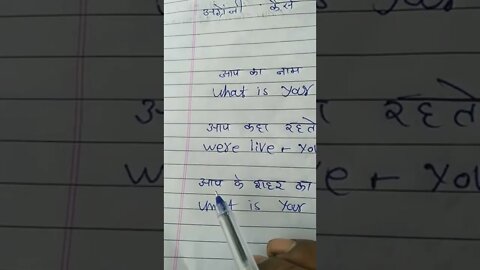 अंग्रेजी कैसे
आप का नाम
what is your
आप कहा रहते
were live + you
आप के शहर का
what is your